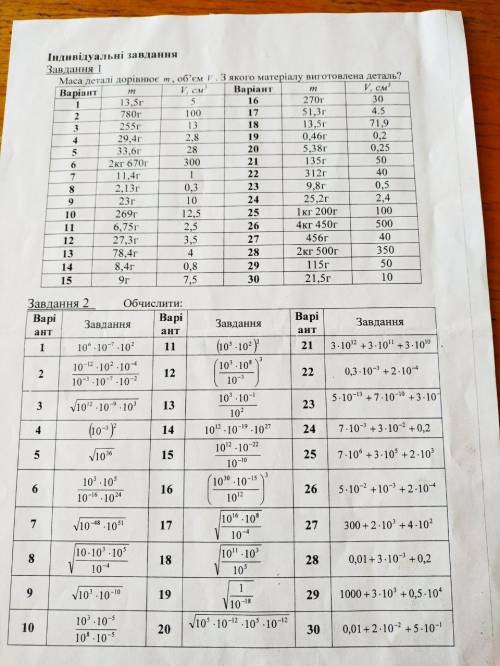 Індивідуальні завдання
Завдання 1
Маса деталі дорівнює m, об'єм V. З якого матеріалу виготовлена деталь?
Варіант m V, см³ Варіант m V, см³
1 13,5г 5 16 270г 30
2 780г 100 17 51,3г 4.5
3 255г 13 18 13,5г 71,9
4 29,4г 2,8 19 0,46г 0,2
5 33,6г 28 20 5,38г 0,25
6 2кг 670г 300 21 135г 50
7 11,4г 1 22 312г 40
8 2,13г 0,3 23 9,8г 0,5
9 23г 10 24 25,2г 2,4
10 269г 12,5 25 1кг 200г 100
11 6,75г 2,5 26 4кг 450г 500
12 27,3г 3,5 27 456г 40
13 78,4г 4 28 2кг 500г 350
14 8,4г 0,8 29 115г 50
15 9г 7,5 30 21,5г 10
Завдання 2 Обчислити:
Варі
ант Завдання Варі
ант Завдання Варі
ант Завдання
1 10⁶·10⁻⁷·10² 11 (10⁵·10²)³ 21 3·10¹²+3·10¹¹+3·10¹⁰
2 (10⁻¹²·10²·10⁻⁴)/(10⁻³·10⁻⁷·10⁻²) 12 ((10³·10⁸)/10⁻³)³ 22 0,3·10⁻³+2·10⁻⁴
3 √(10¹²·10⁻⁹·10³) 13 (10³·10⁻¹)/10² 23 5·10⁻¹³+7·10⁻¹⁰+3·10⁻
4 (10⁻³)² 14 10¹²·10⁻¹⁹·10²⁷ 24 7·10⁻³+3·10⁻²+0,2
5 √10³⁶ 15 (10¹²·10⁻²²)/10⁻¹⁰ 25 7·10⁶+3·10⁵+2·10³
6 (10³·10⁵)/(10⁻¹⁶·10²⁴) 16 ((10³⁰·10⁻¹⁵)/10¹²)³ 26 5·10⁻²+10⁻³+2·10⁻⁴
7 √(10⁻⁴⁸·10⁵¹) 17 √((10¹⁶·10⁸)/10⁻⁴) 27 300+2·10³+4·10²
8 √((10·10³·10⁵)/10⁻⁴) 18 √((10¹¹·10³)/10⁵) 28 0,01+3·10⁻³+0,2
9 √(10³·10⁻¹⁰) 19 √(1/10⁻¹⁸) 29 1000+3·10³+0,5·10⁴
10 (10³·10⁻⁵)/(10⁸·10⁻⁵) 20 √(10⁵·10⁻¹²·10³·10⁻¹²) 30 0,01+2·10⁻²+5·10⁻¹